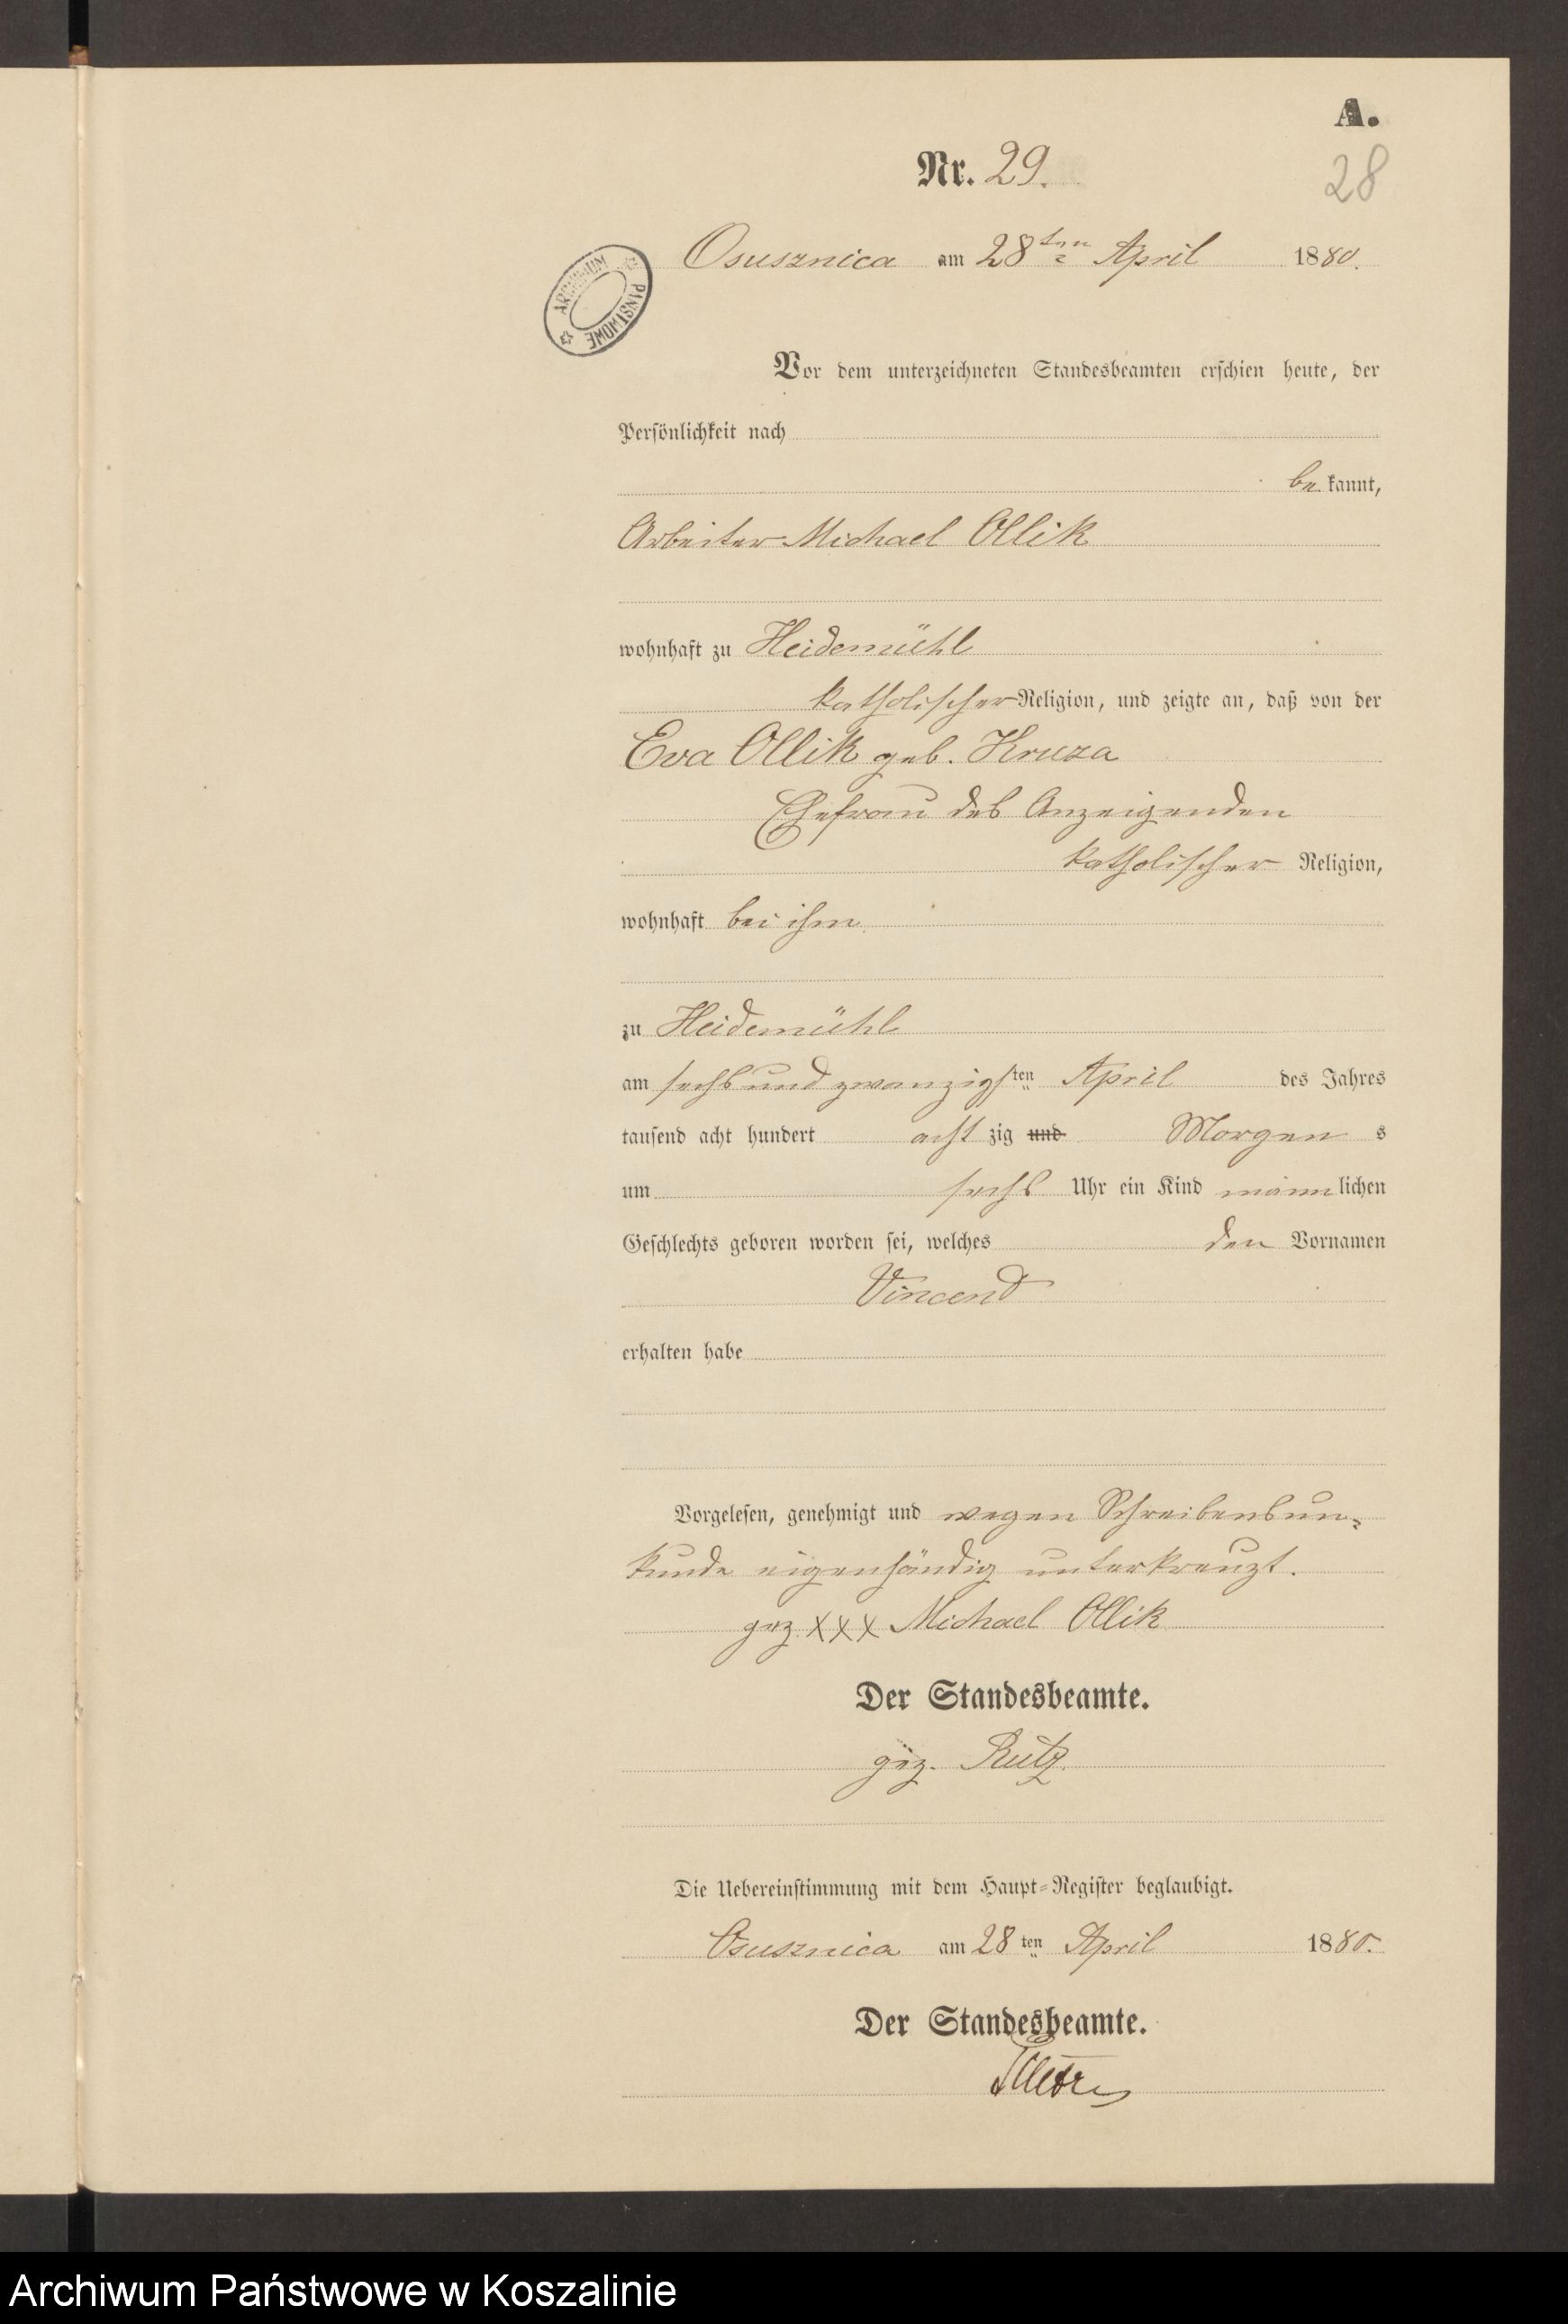 A.
Nr. 29.
28
Osusznica am 28ten April 1880.
ARCHIWUM PAŃSTWOWE
Vor dem unterzeichneten Standesbeamten erschien heute, der
Persönlichkeit nach
be kannt,
Arbeiter Michael Ollik
wohnhaft zu Heidemühl
katholischer Religion, und zeigte an, daß von der
Eva Ollik geb. Kruza
Ehefrau des Anzeigenden
katholischer Religion,
wohnhaft bei ihm
zu Heidemühl
am sechs und zwanzigsten April des Jahres
tausend acht hundert acht zig und Morgen s
um sechs Uhr ein Kind männlichen
Geschlechts geboren worden sei, welches den Vornamen
Vincend
erhalten habe
Vorgelesen, genehmigt und wegen Schreibensun-
kunde eigenhändig unterkreuzt.
gez. XXX Michael Ollik
Der Standesbeamte.
gez. Rutz.
Die Uebereinstimmung mit dem Haupt-Register beglaubigt.
Osusznica am 28ten April 1880.
Der Standesbeamte.
Archiwum Państwowe w Koszalinie